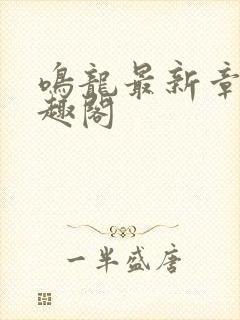 鳴龍最新章
趣閣
一半盛唐